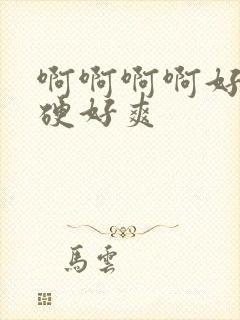 啊啊啊啊好
硬好爽
馬雲